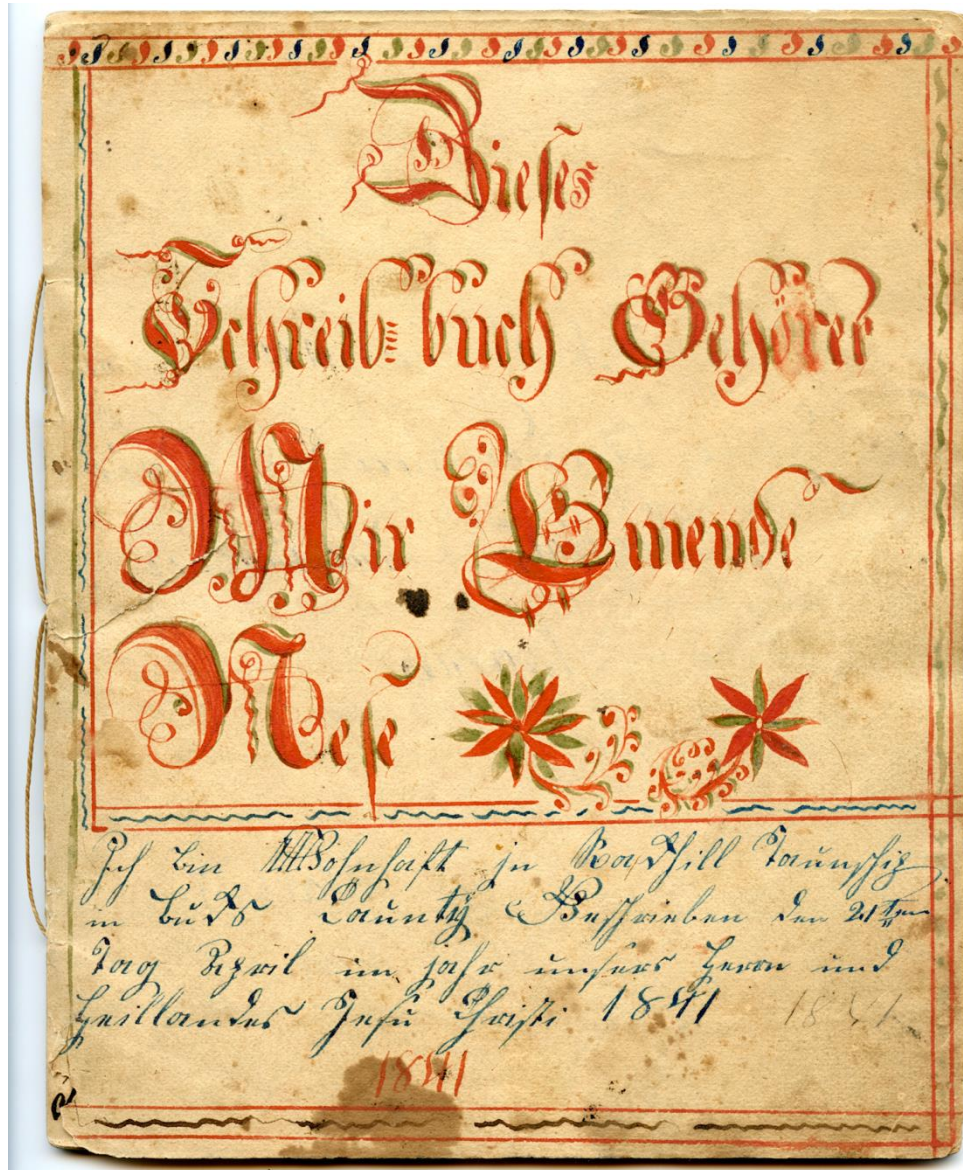 Dieses
Schreib-buch Gehöret
Mir Emende
Mese
Ich bin Wohnhaft in Rockhill Taunschip
in Bucks Caunty Geschrieben den 21ten
Tag April im jahr unsers Herrn und
Heillandes Jesu Christi 1841 1841
1841